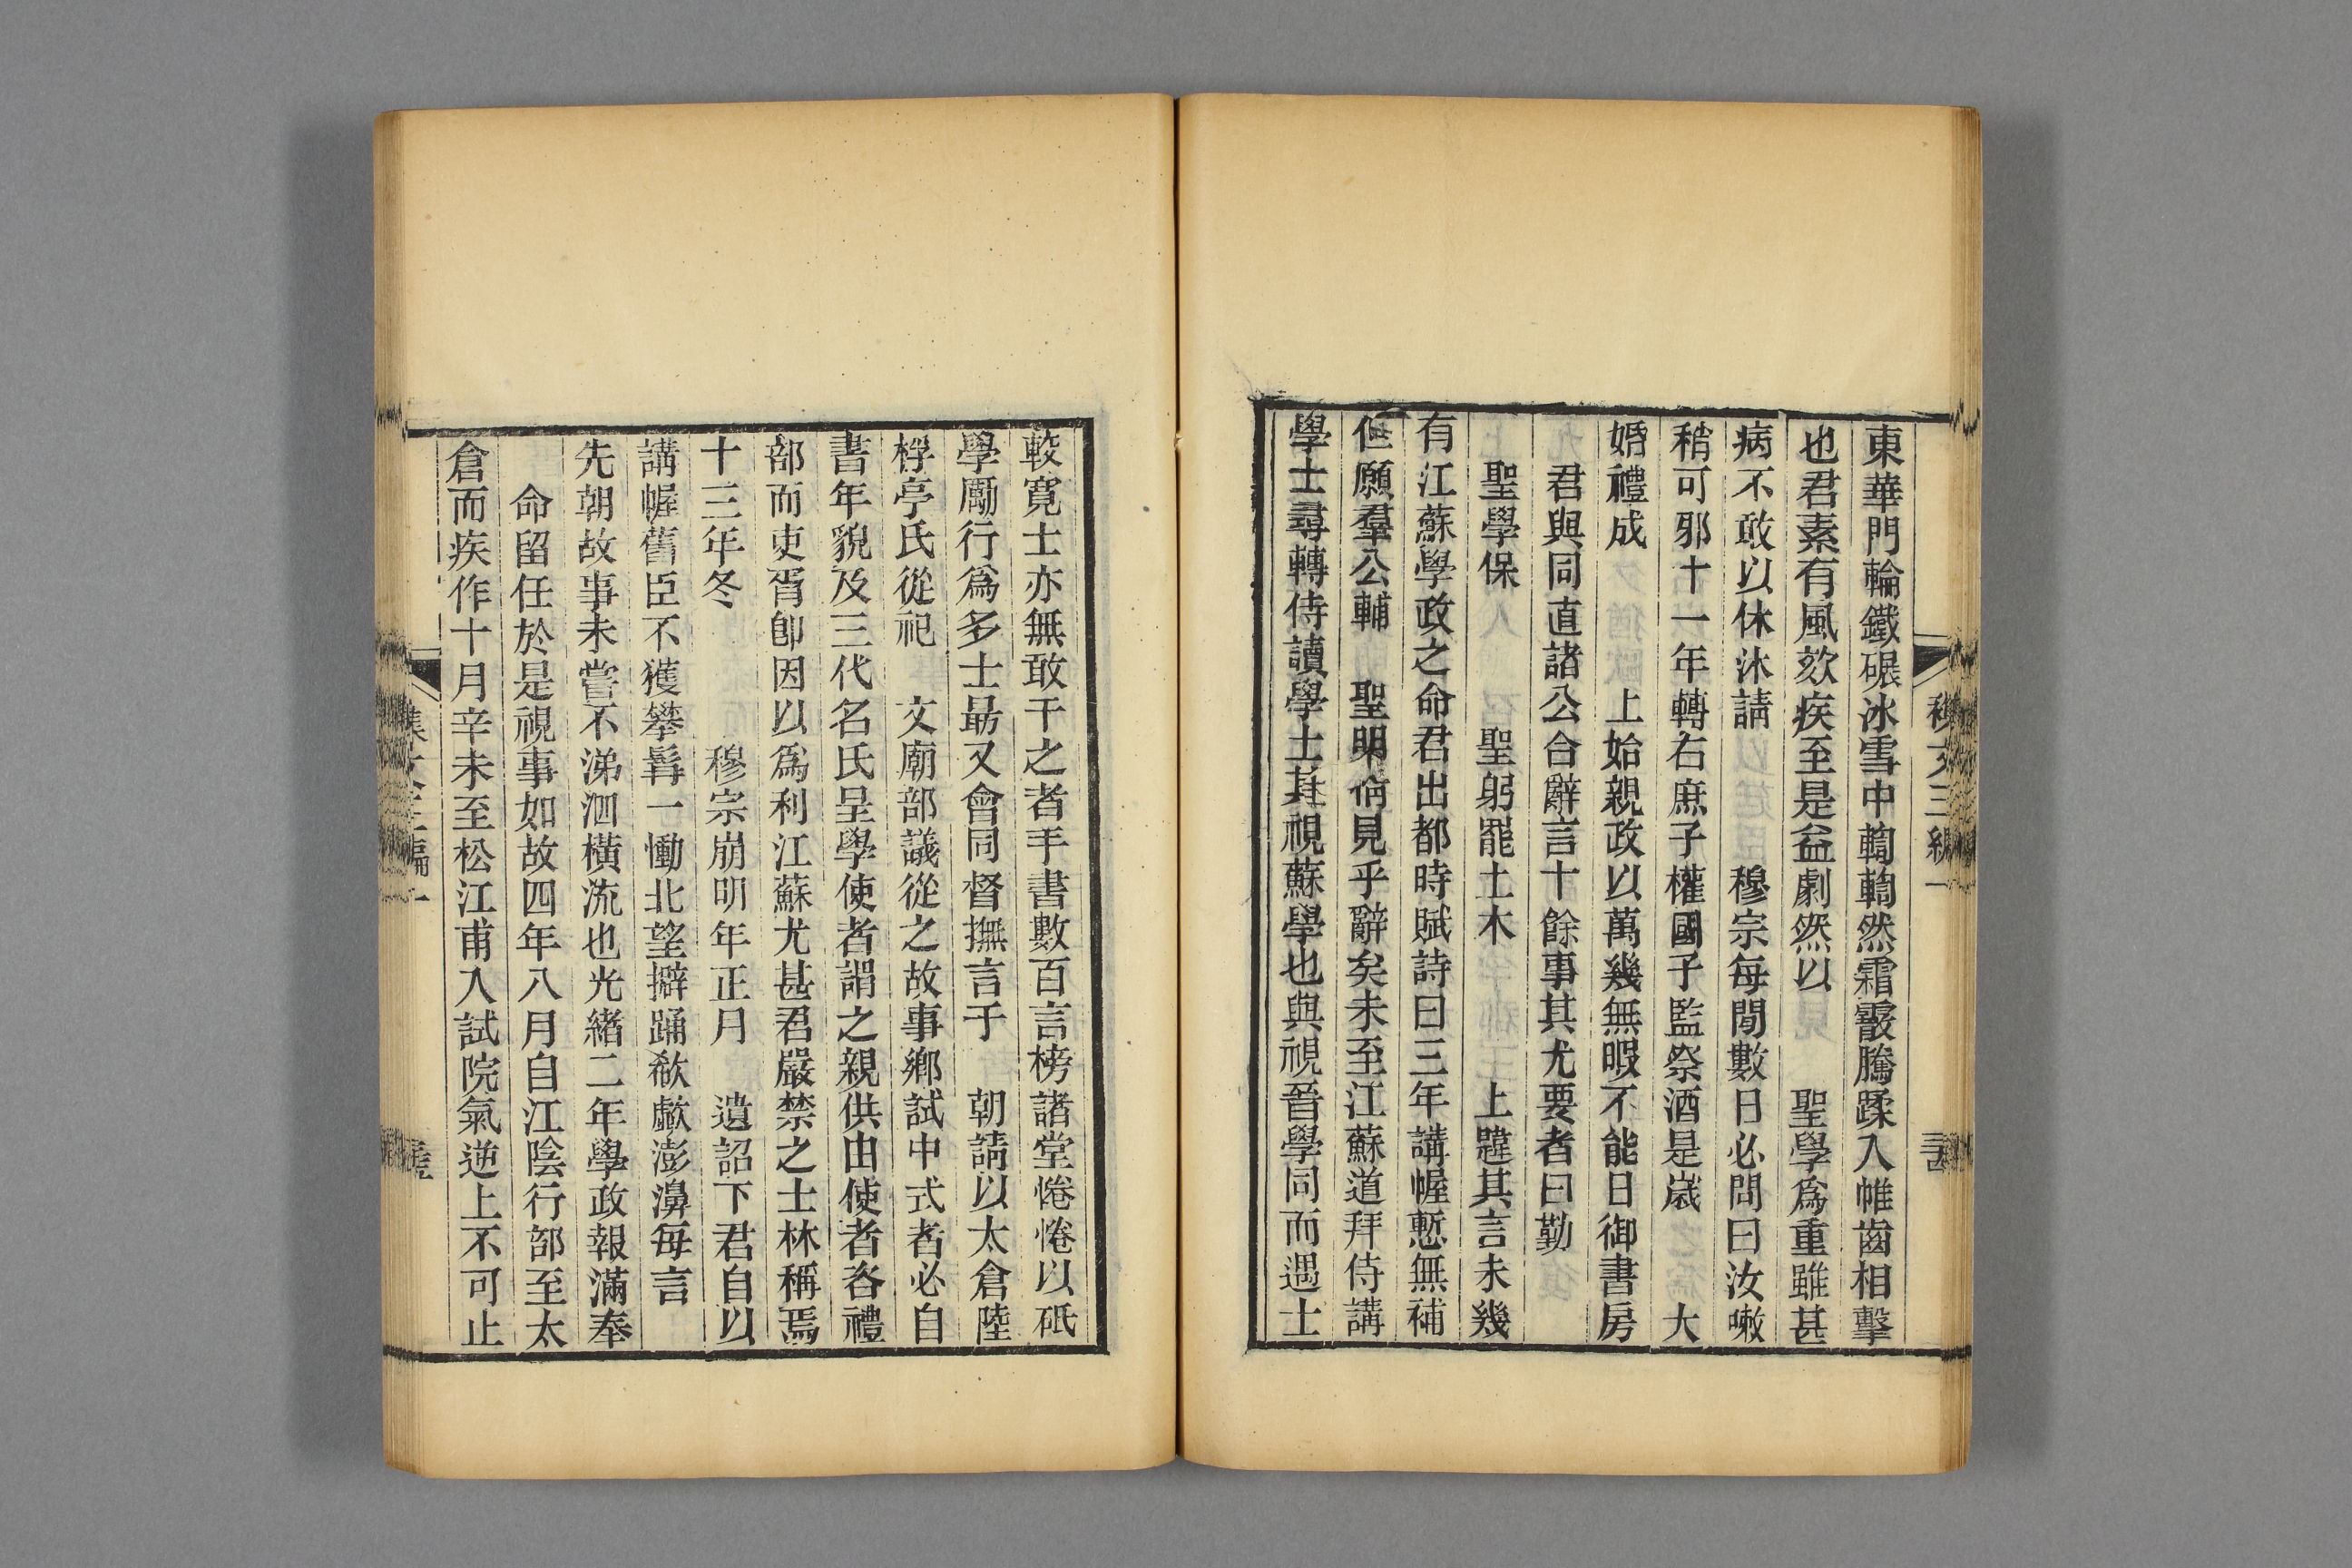 東華門輪鐵碾冰雪中輷輷然霜霰騰蹂入帷齒相擊
也君素有風欬疾至是益劇然以　聖學爲重雖甚
病不敢以休沐請　穆宗每閒數日必問曰汝嗽
稍可邪十一年轉右庶子權國子監祭酒是歲　大
婚禮成　上始親政以萬幾無暇不能日御書房
君與同直諸公合辭言十餘事其尤要者曰勤
聖學保　聖躬罷土木　上韙其言未幾
有江蘇學政之命君出都時賦詩曰三年講幄慙無補
但願羣公輔　聖明倘見乎辭矣未至江蘇道拜侍講
學士尋轉侍讀學士其視蘇學也與視晉學同而遇士
較寬士亦無敢干之者手書數百言榜諸堂惓惓以砥
學勵行爲多士最又會同督撫言于　朝請以太倉陸
桴亭氏從祀　文廟部議從之故事鄉試中式者必自
書年貌及三代名氏呈學使者謂之親供由使者咨禮
部而吏胥卽因以爲利江蘇尤甚君嚴禁之士林稱焉
十三年冬　穆宗崩明年正月　遺詔下君自以
講幄舊臣不獲攀髯一慟北望擗踊欷歔澎濞每言
先朝故事未嘗不涕泗橫流也光緒二年學政報滿奉
命留任於是視事如故四年八月自江陰行部至太
倉而疾作十月辛未至松江甫入試院氣逆上不可止